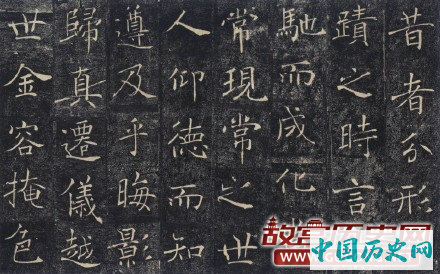 昔者分形
蹟之時言
馳而成化
常現常之世
人仰德而知
遵及乎晦影
歸真遷儀越
世金容掩色
故宫历史网
中国历史网